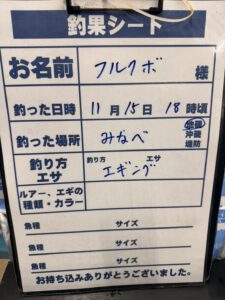 釣果シート
お名前 フルクボ 様
釣った日時 11月15日 18時頃
釣った場所 みなべ 地磯 沖磯 堤防
釣り方 エサ 釣り方 エサ エギング
ルアー、エギの種類・カラー
魚種 サイズ
魚種 サイズ
魚種 サイズ
お持ち込みありがとうございました。